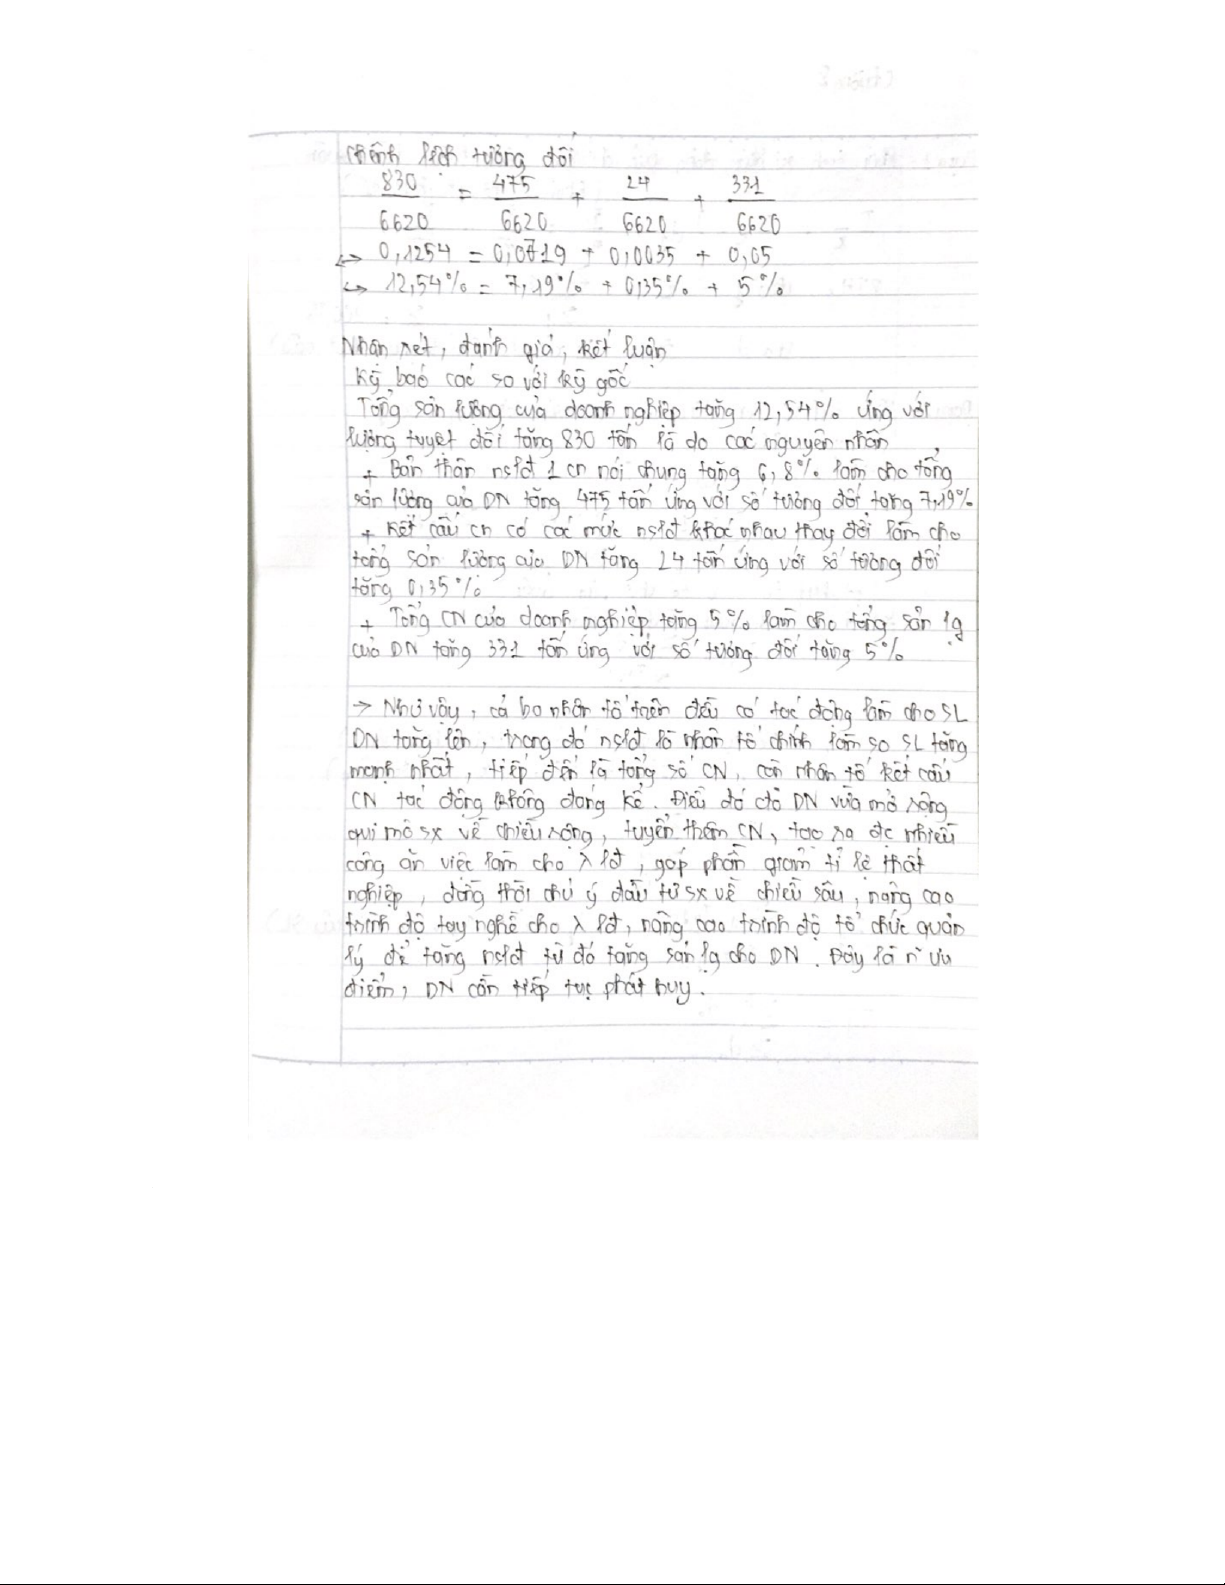 Chênh lệch tương đối
830/6620 = 475/6620 + 24/6620 + 331/6620
↔ 0,1254 = 0,0719 + 0,0035 + 0,05
↔ 12,54% = 7,19% + 0,35% + 5%
Nhận xét, đánh giá, kết luận
Kỳ báo cáo so với kỳ gốc
Tổng sản lượng của doanh nghiệp tăng 12,54% ứng với
lượng tuyệt đối tăng 830 tấn là do các nguyên nhân
+ Bản thân nslđ 1 cn nói chung tăng 6,8% làm cho tổng
sản lượng của DN tăng 475 tấn ứng với số tương đối tăng 7,19%
+ Kết cấu cn có các mức nslđ khác nhau thay đổi làm cho
tổng sản lượng của DN tăng 24 tấn ứng với số tương đối
tăng 0,35%
+ Tổng CN của doanh nghiệp tăng 5% làm cho tổng sản lg
của DN tăng 331 tấn ứng với số tương đối tăng 5%
→ Như vậy, cả ba nhân tố trên đều có tác động làm cho SL
DN tăng lên, trong đó nslđ là nhân tố chính làm so SL tăng
mạnh nhất, tiếp đến là tổng số CN, còn nhân tố kết cấu
CN tác động không đáng kể. Điều đó đò DN vừa mở rộng
qui mô sx về chiều rộng, tuyển thêm CN, tạo ra đc nhiều
công ăn việc làm cho λ lđ, góp phần giảm tỉ lệ thất
nghiệp, đồng thời chú ý đầu tư sx về chiều sâu, nâng cao
trình độ tay nghề cho λ lđ, nâng cao trình độ tổ chức quản
lý để tăng nslđ từ đó tăng sản lg cho DN. Đây là n~ ưu
điểm, DN cần tiếp tục phát huy.